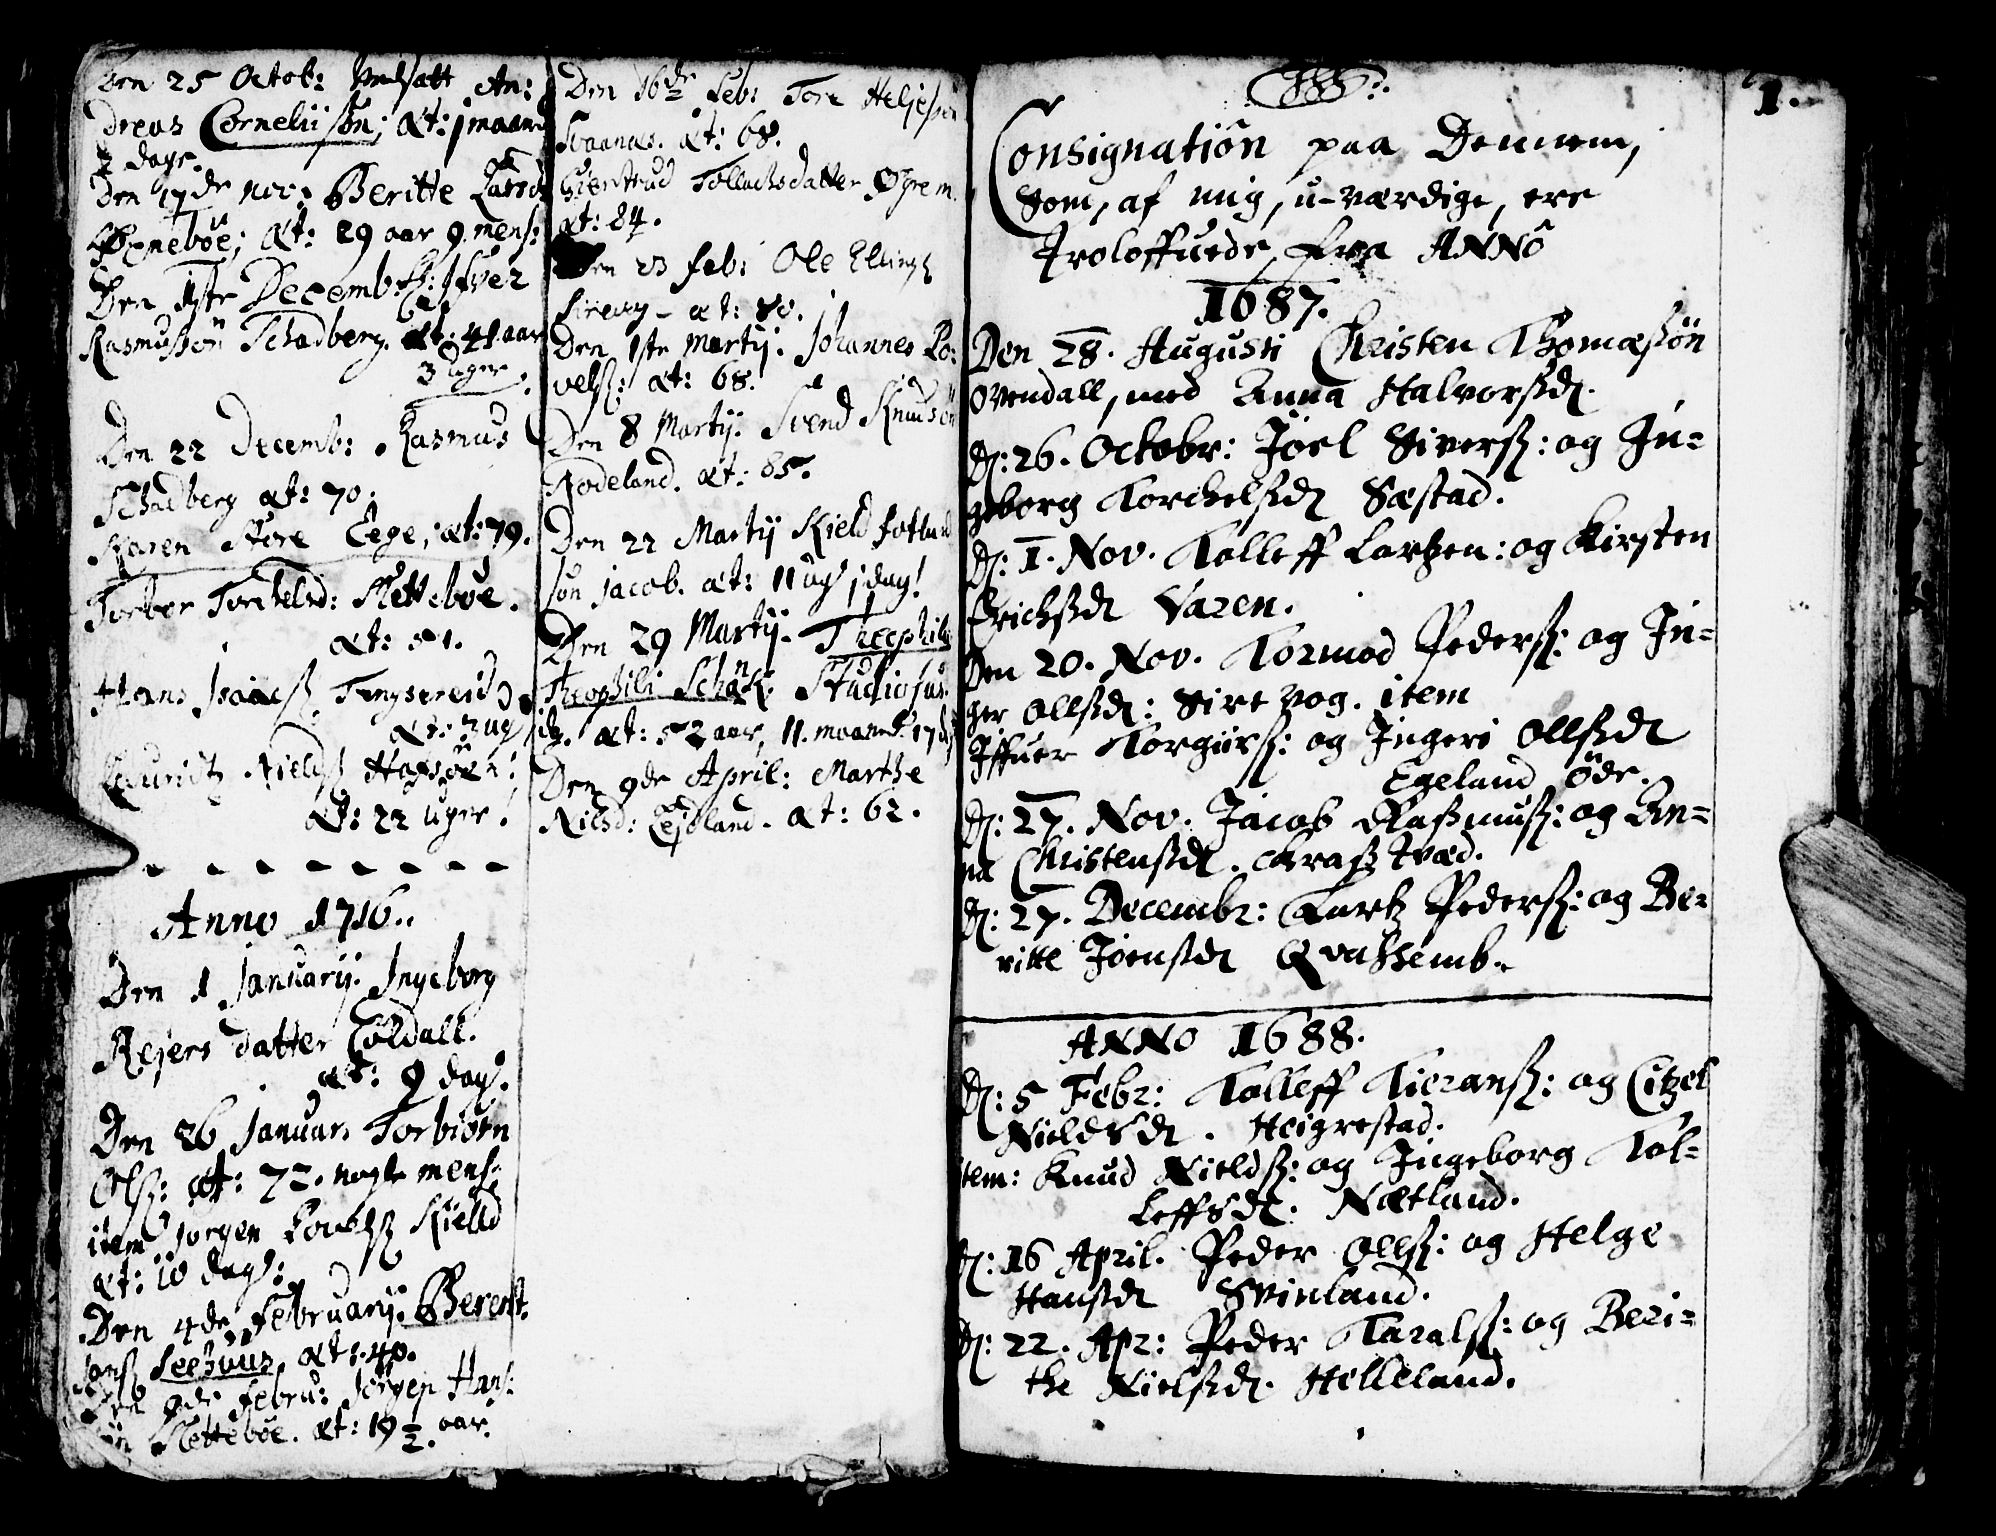 Den 25 Octob: Undsatt An:
dreas Cornelii søn; æt: 1 maan
2 dage.
Den 17de nov: Beritte Larsd
Øxneböe; æt: 29 aar 9. mens:
Den 1ste Decemb: Ifver
Rasmussön Schadberg. æt: 41 aar
3 uger.
Den 22 Decemb: Rasmus
Schadberg æt: 70.
Karen Store Eege; æt: 79.
Torbor Torchelsd: Sletteböe.
æt: 51.
Hans Isaacs Tengsereid
æt: 3 ug
Lauritz Nields
æt: 22 uger!
Anno 1716.
Den 1 Januarij. Ingeborg
Rejers datter Cöldall.
æt: 9 dag.
Den 26 Januar. Torbiörn
Ols: æt: 72. nogle mens:
item Jørgen Povels Kielld
æt: 10 dag:
Den 4de Februarij. Berent
Jans Leehuus, æt: 40.
Den 9de Febru: Jörgen Hans:
søn Sletteböe. æt: 19 ½ aar.
Den 16de Feb: Tore Heljesön
Svaanæs. æt: 68.
Giertrud Tollachsdatter Øgrem.
æt: 84.
Den 23 feb: Ole Ellings
Sirevog - æt: 80.
Den 1ste Martij. Johannes Po:
vels: æt: 68.
Den 8 Martij. Svend Knudsön
Rodeland. æt: 85.
Den 22 Martij Kield
søn Jacob. æt: 11 ug 1 dag!
Den 29 Martij. Theophil
Theophili Studiosus.
æt: 52 aar, 11. maaned. 17 d
Den 9de April: Marthe
Nilsd: Lejdland. æt: 62.
1.
Consignatiön paa Dennem,
Som, af mig, u-værdige, ere
Troloffuede, fra ANNO
1687.
Den 28. Augusti Christen Thomæsön
Ovendall, med Anna Halvorsd.
D: 26. Octobr: Joel Sivers: og In-
geborg Torchelsd Sæstad.
D: 1. Nov. Tolleff Lartzen: og Kirsten
Erichsd Varen.
Den 20. Nov. Tormod Peders: og In-
ger Ollsd: Sirevog. item
Iffuer Torgiirs: og Ingeri Ollsd
Egeland öde.
D: 27. Nov. Jacob Rassmus: og An-
na Christensd.
D: 27. Decembr: Lartz Peders: og Be-
ritte Joensd Qvassemb.
ANNO 1688.
D: 5 Febr: Tolleff Tierans: og Citzel
Nieldsd. Heigrestad.
item: Knud Nields: og Ingeborg Tol-
leffsd. Nætland.
D: 16 April. Peder Olls: og Helge
Hansd Svinland.
D: 22. Apr: Peder Taralss: og Beri-
the Nielsd. Helleland.